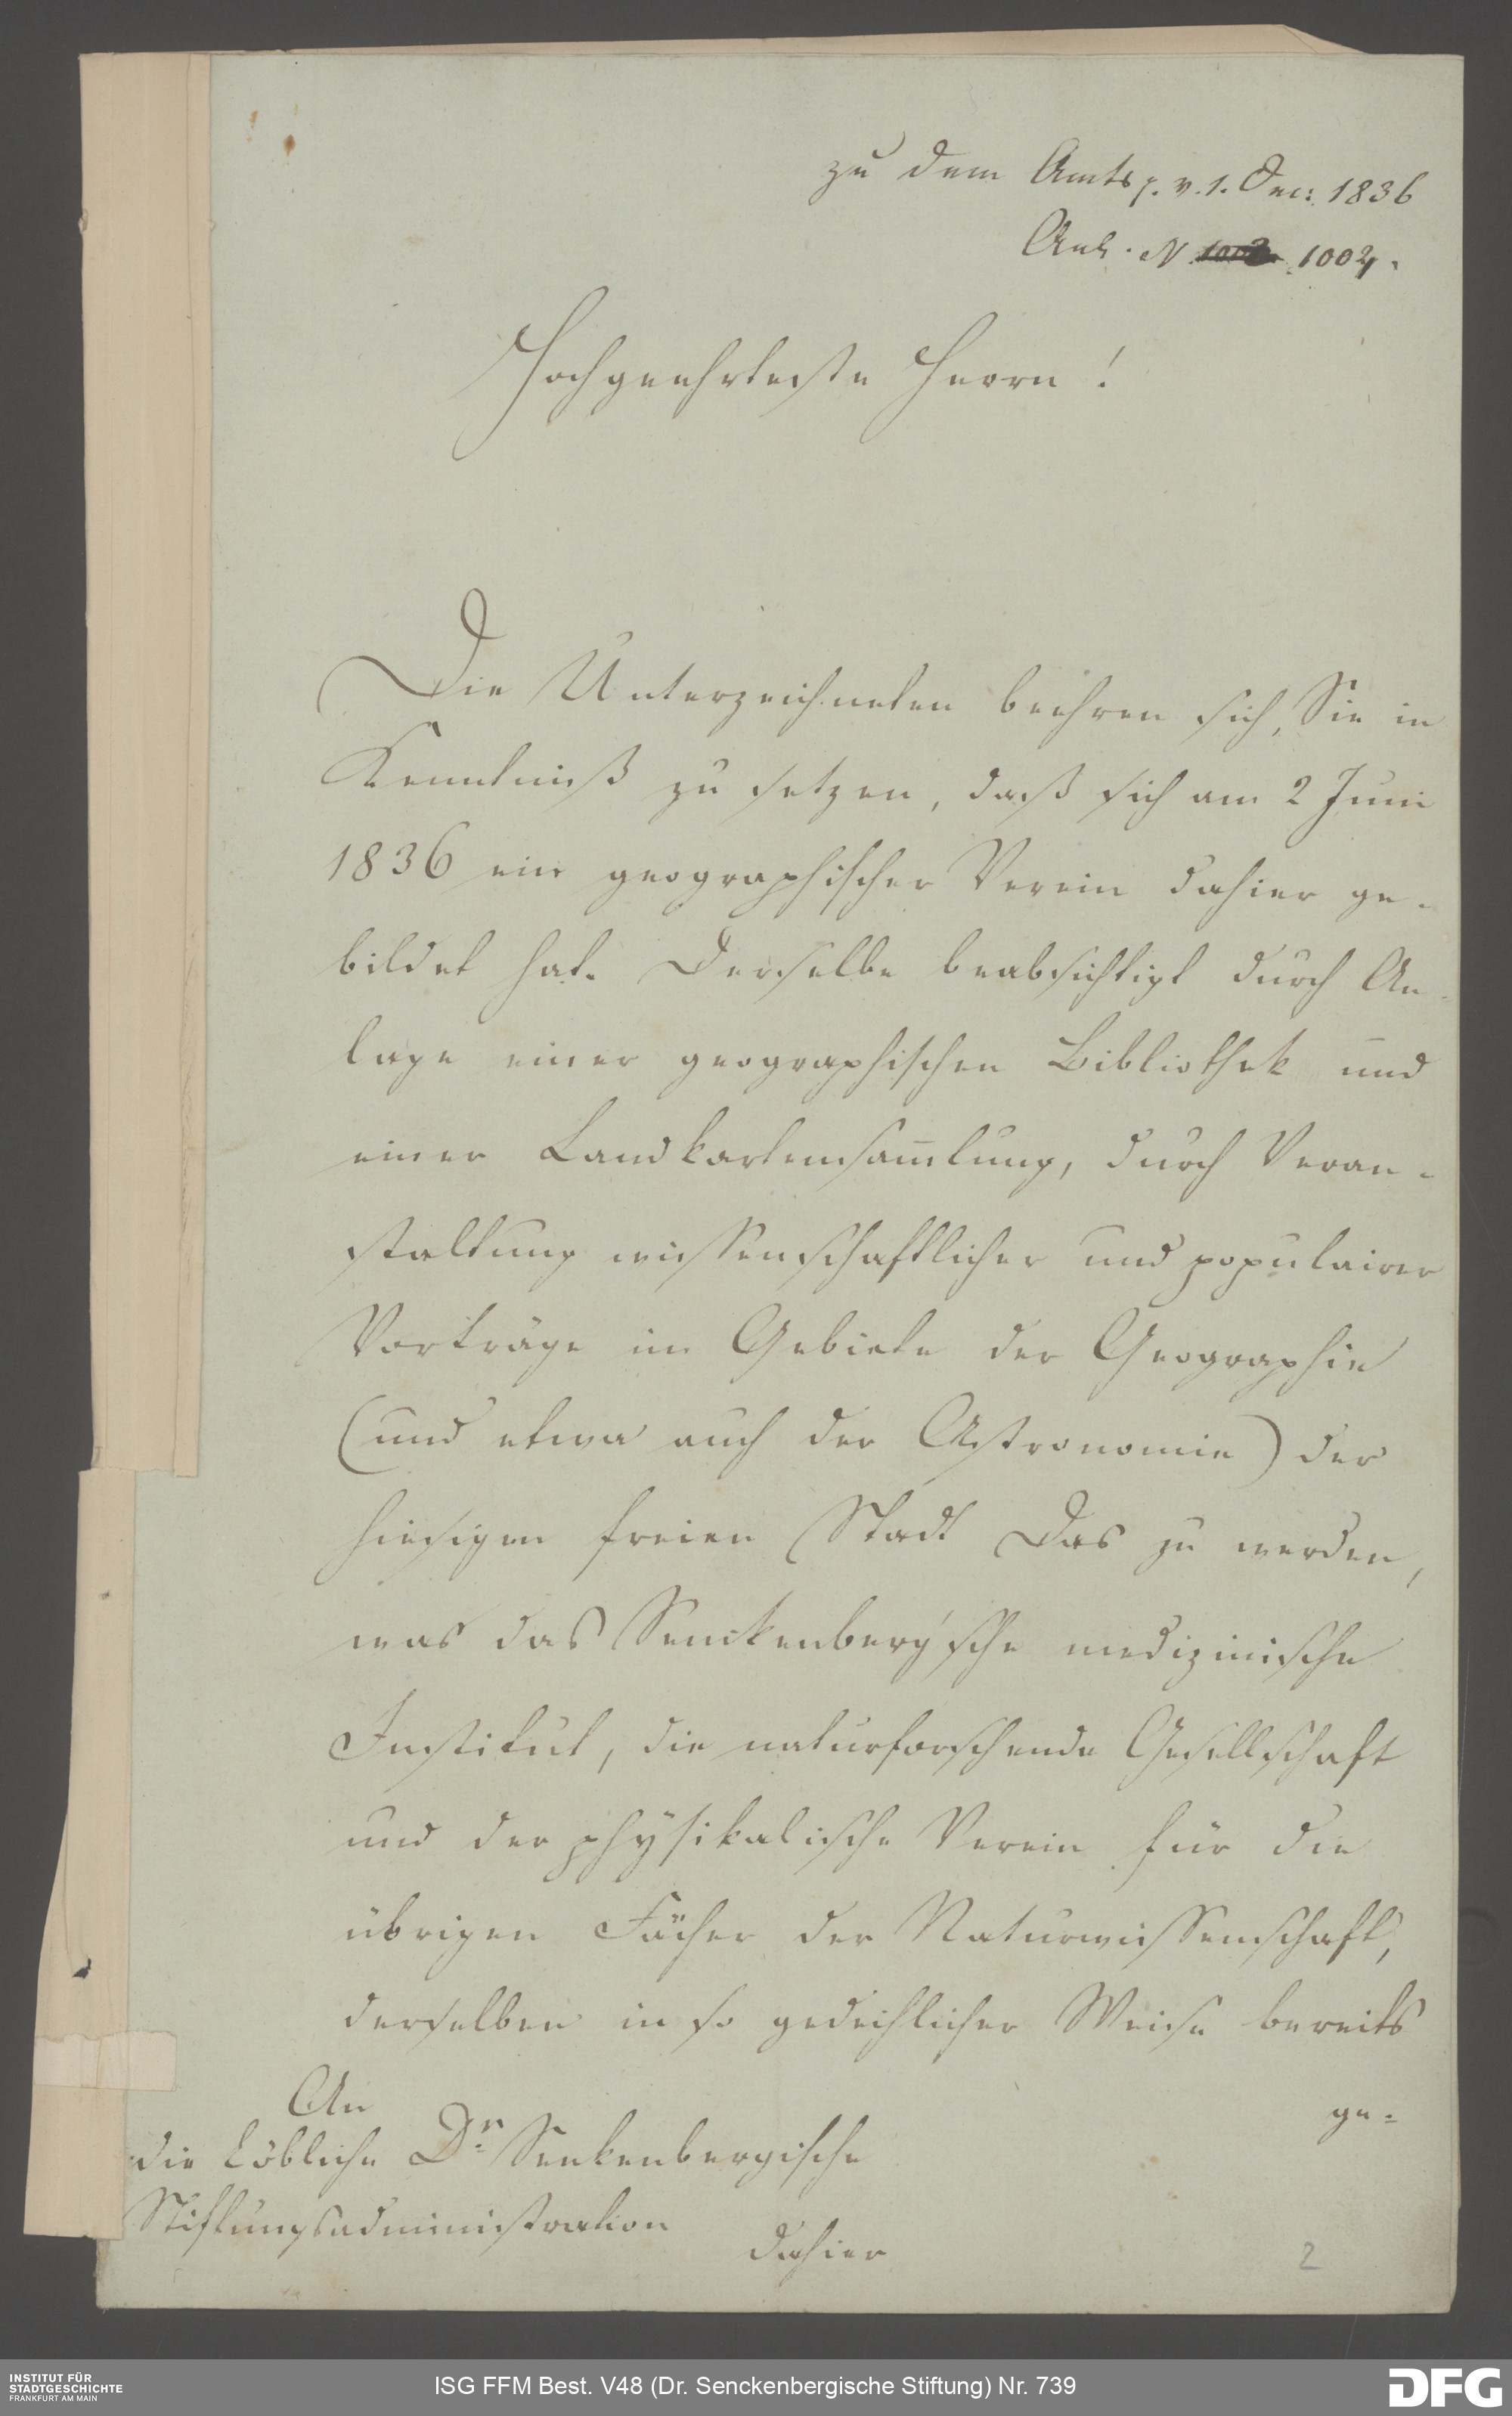 zu dem Amtsp. v. 1. Dec: 1836
Anl. N 1002.
Hochgeehrteste Herrn!
Die Unterzeichneten beehren sich, Sie in
Kenntniß zu setzen, daß sich am 2 Juni
1836 ein geographischer Verein dahier ge-
bildet hat. Derselbe beabsichtigt durch An-
lage einer geographischen Bibliothek und
einer Landkartensam̅lung, durch Veran-
staltung wissenschaftlicher und populairer
Vorträge im Gebiete der Geographie
(und etwa auch der Astronomie) der
hiesigen freien Stadt Das zu werden,
was das Senckenberg'sche medizinische
Institut, die naturforschende Gesellschaft
und der physikalische Verein für die
übrigen Fächer der Naturwissenschaft,
derselben in so gedeihlicher Weise bereits
ge-
An
die Löbliche Dr Senkenbergische
Stiftungsadministration
dahier
2
INSTITUT FÜR
STADTGESCHICHTE
FRANKFURT AM MAIN
ISG FFM Best. V48 (Dr. Senckenbergische Stiftung) Nr. 739
DFG